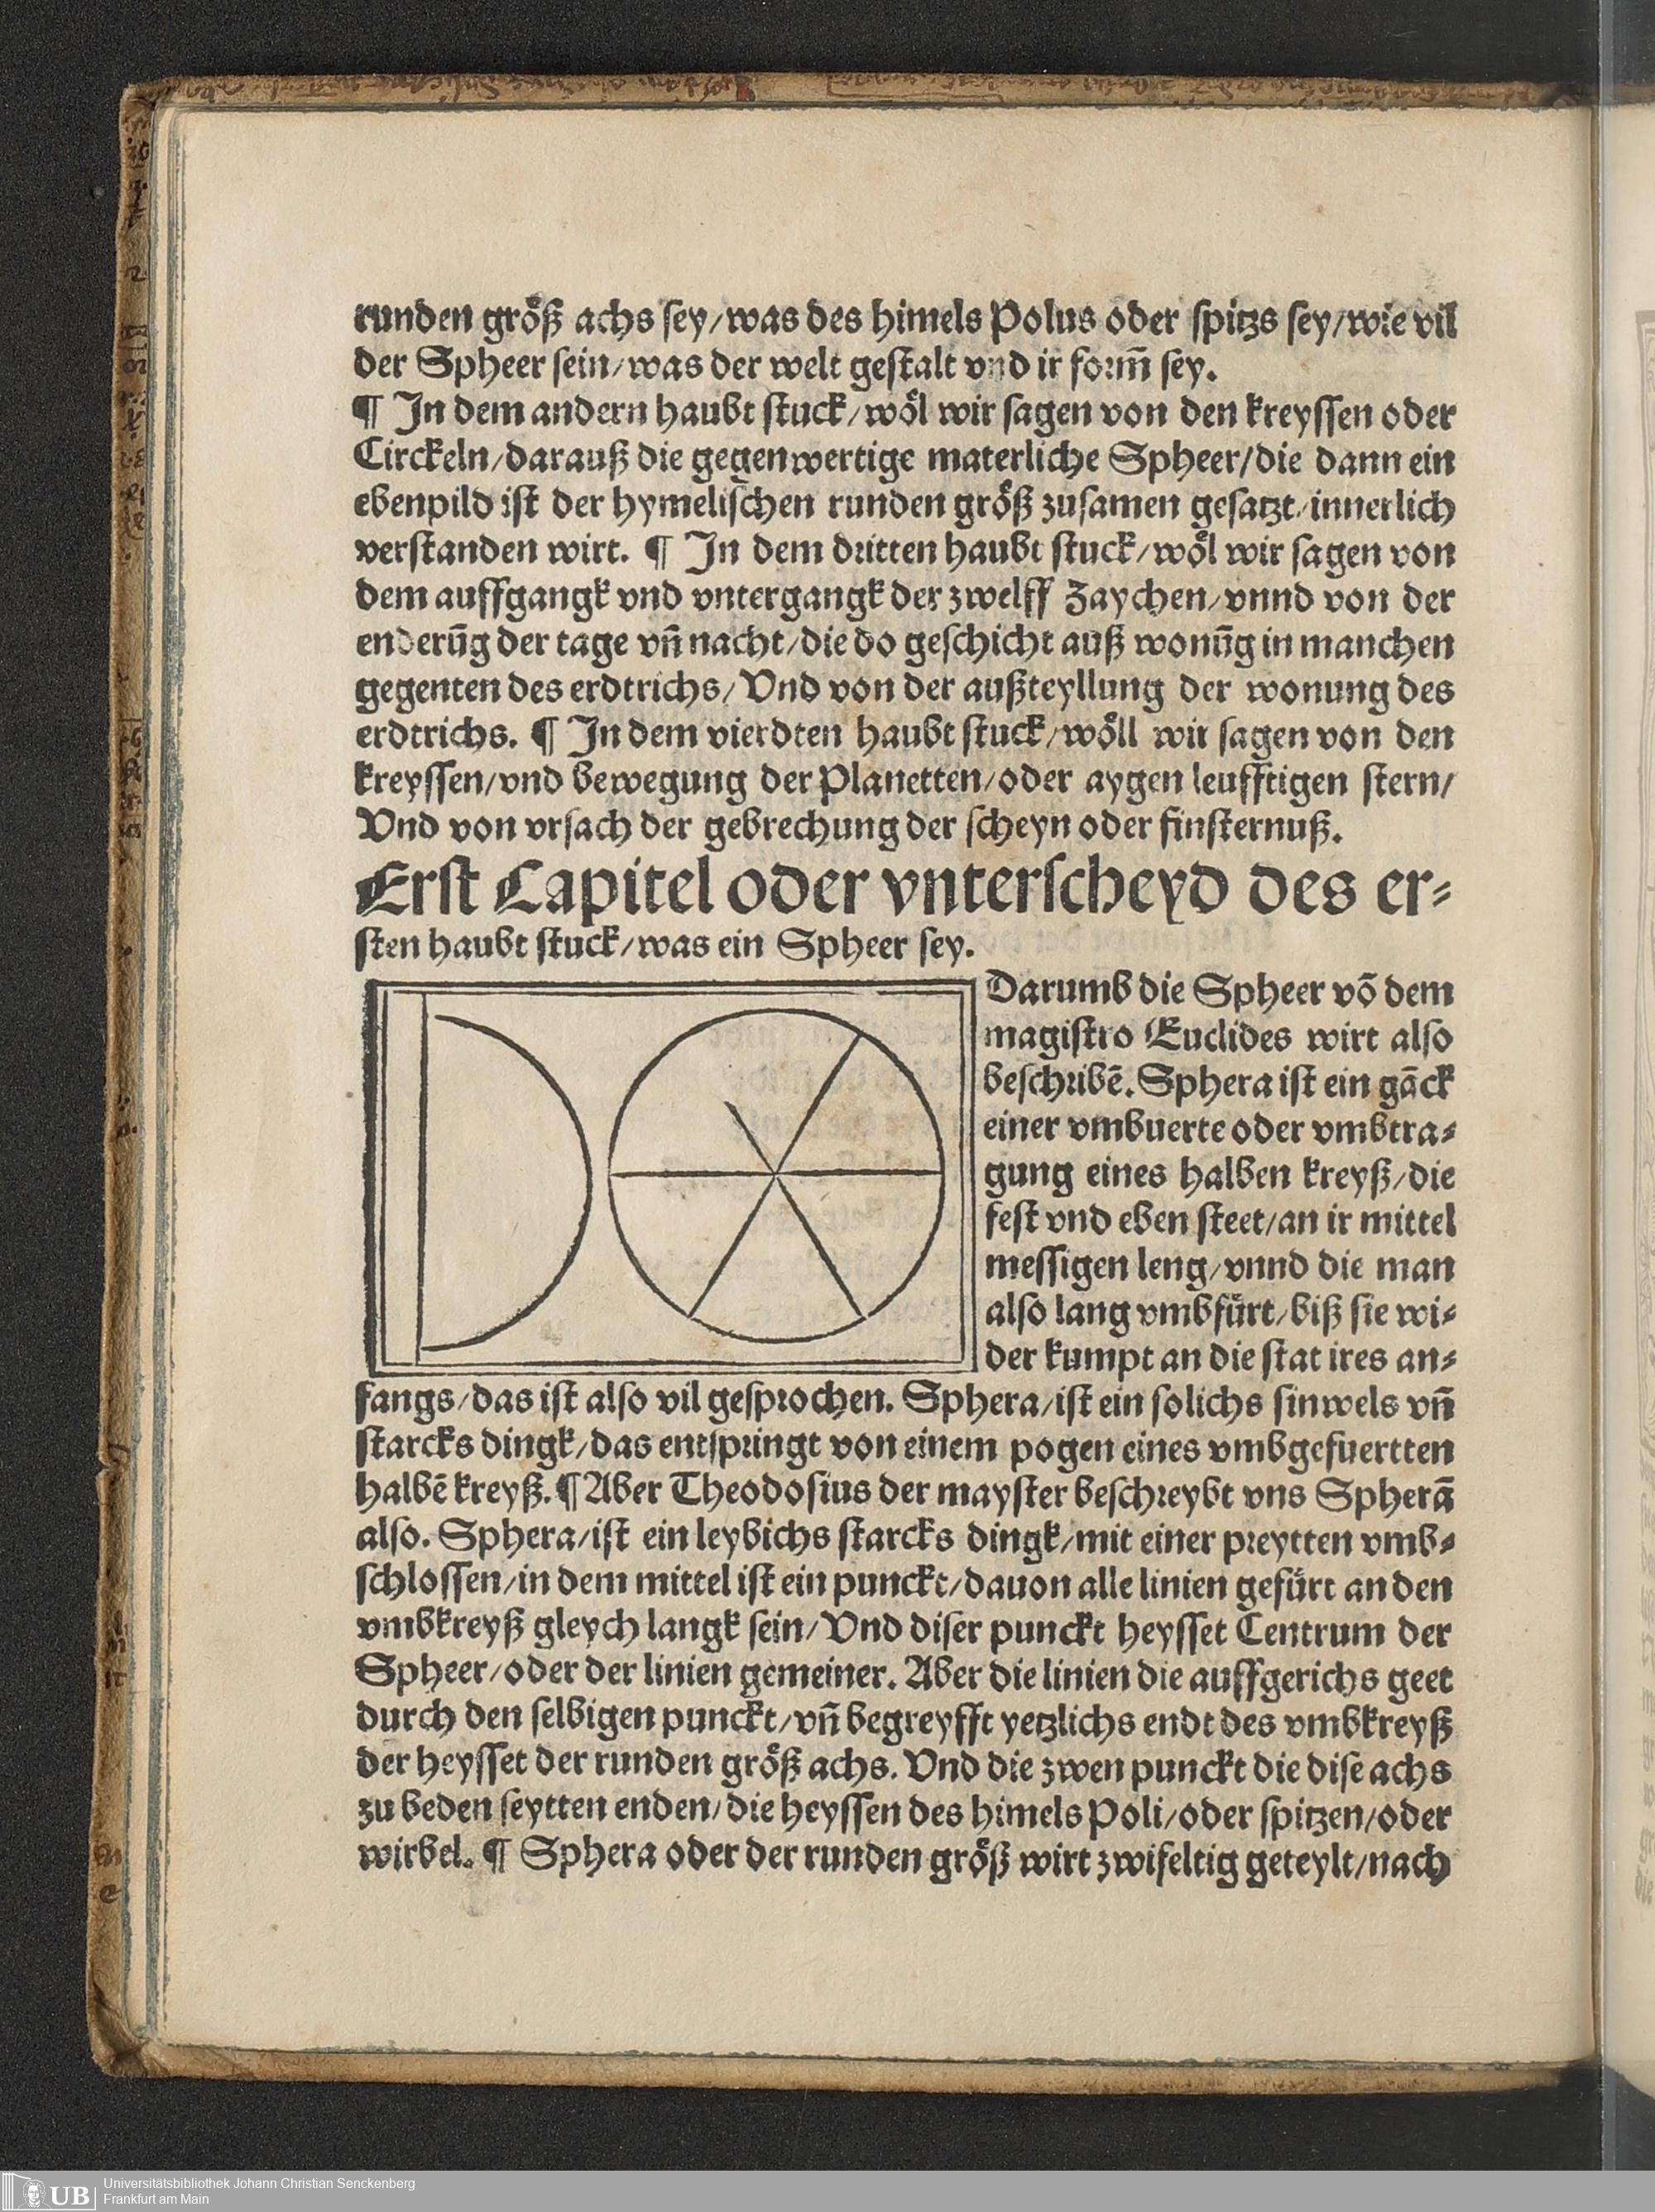 runden größ achs sey/was des himels Polus oder spitzs sey/wie vil
der Spheer sein/was der welt gestalt vnd ir form̃ sey.
¶ In dem andern haubt stuck/wöl wir sagen von den kreyssen oder
Circkeln/darauß die gegenwertige materliche Spheer/die dann ein
ebenpild ist der hymelischen runden größ zusamen gesatzt/innerlich
verstanden wirt. ¶ In dem dritten haubt stuck/wöl wir sagen von
dem auffgangk vnd vntergangk der zwelff Zaychen/vnnd von der
enderūg der tage vn̄ nacht/die do geschicht auß wonūg in manchen
gegenten des erdtrichs/Vnd von der außteyllung der wonung des
erdtrichs. ¶ In dem vierdten haubt stuck/wöll wir sagen von den
kreyssen/vnd bewegung der Planetten/oder aygen leufftigen stern/
Vnd von vrsach der gebrechung der scheyn oder finsternuß.
Erst Capitel oder vnterscheyd des er⸗
sten haubt stuck/was ein Spheer sey.
Darumb die Spheer vō dem
magistro Euclides wirt also
beschribē. Sphera ist ein gāck
einer vmbuerte oder vmbtra⸗
gung eines halben kreyß/die
fest vnd eben steet/an ir mittel
messigen leng/vnnd die man
also lang vmbfürt/biß sie wi⸗
der kumpt an die stat ires an⸗
fangs/das ist also vil gesprochen. Sphera/ist ein solichs sinwels vn̄
starcks dingk/das entspringt von einem pogen eines vmbgefuertten
halbē kreyß. ¶ Aber Theodosius der mayster beschreybt vns Spherā
also. Sphera/ist ein leybichs starcks dingk/mit einer preytten vmb⸗
schlossen/in dem mittel ist ein punckt/dauon alle linien gefürt an den
vmbkreyß gleych langk sein/Vnd diser punckt heysset Centrum der
Spheer/oder der linien gemeiner. Aber die linien die auffgerichs geet
durch den selbigen punckt/vn̄ begreyfft yetzlichs endt des vmbkreyß
der heysset der runden größ achs. Vnd die zwen punckt die dise achs
zu beden seytten enden/die heyssen des himels Poli/oder spitzen/oder
wirbel. ¶ Sphera oder der runden größ wirt zwifeltig geteylt/nach
UB
Universitätsbibliothek Johann Christian Senckenberg
Frankfurt am Main